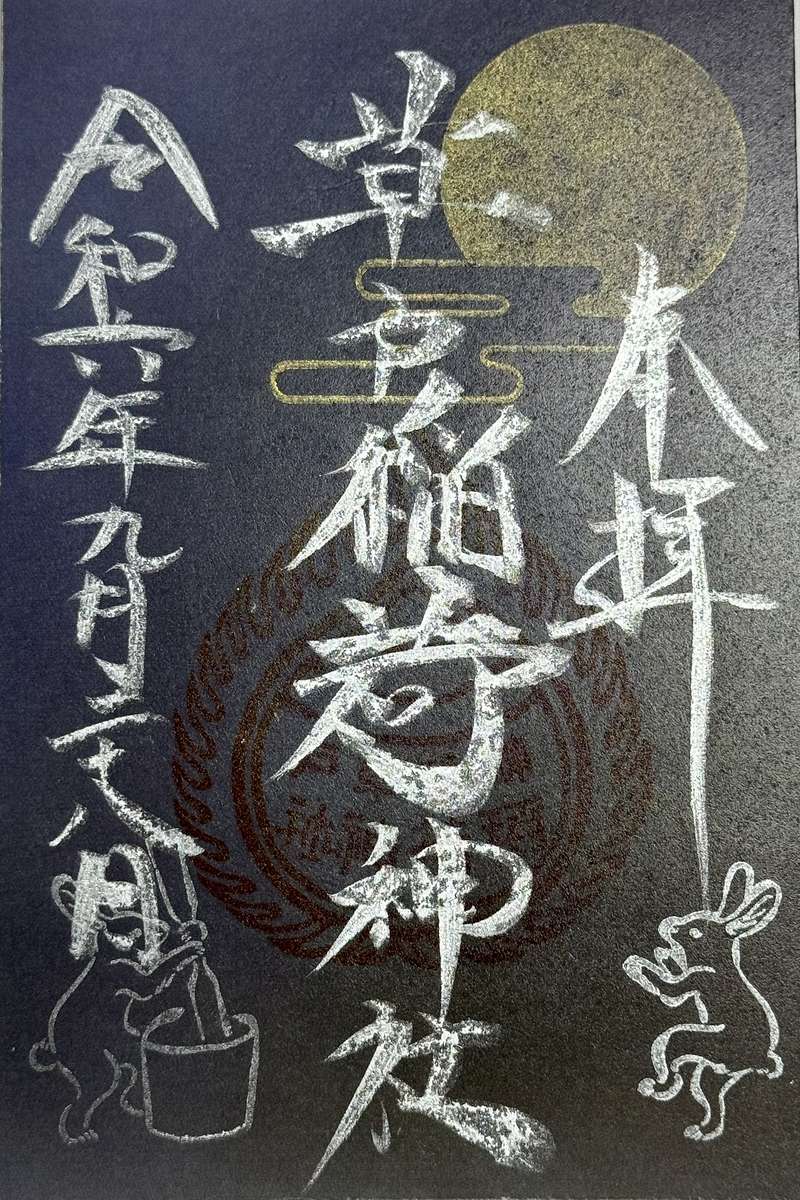 奉拝
草戸稲荷神社
令和六年九月二十八日